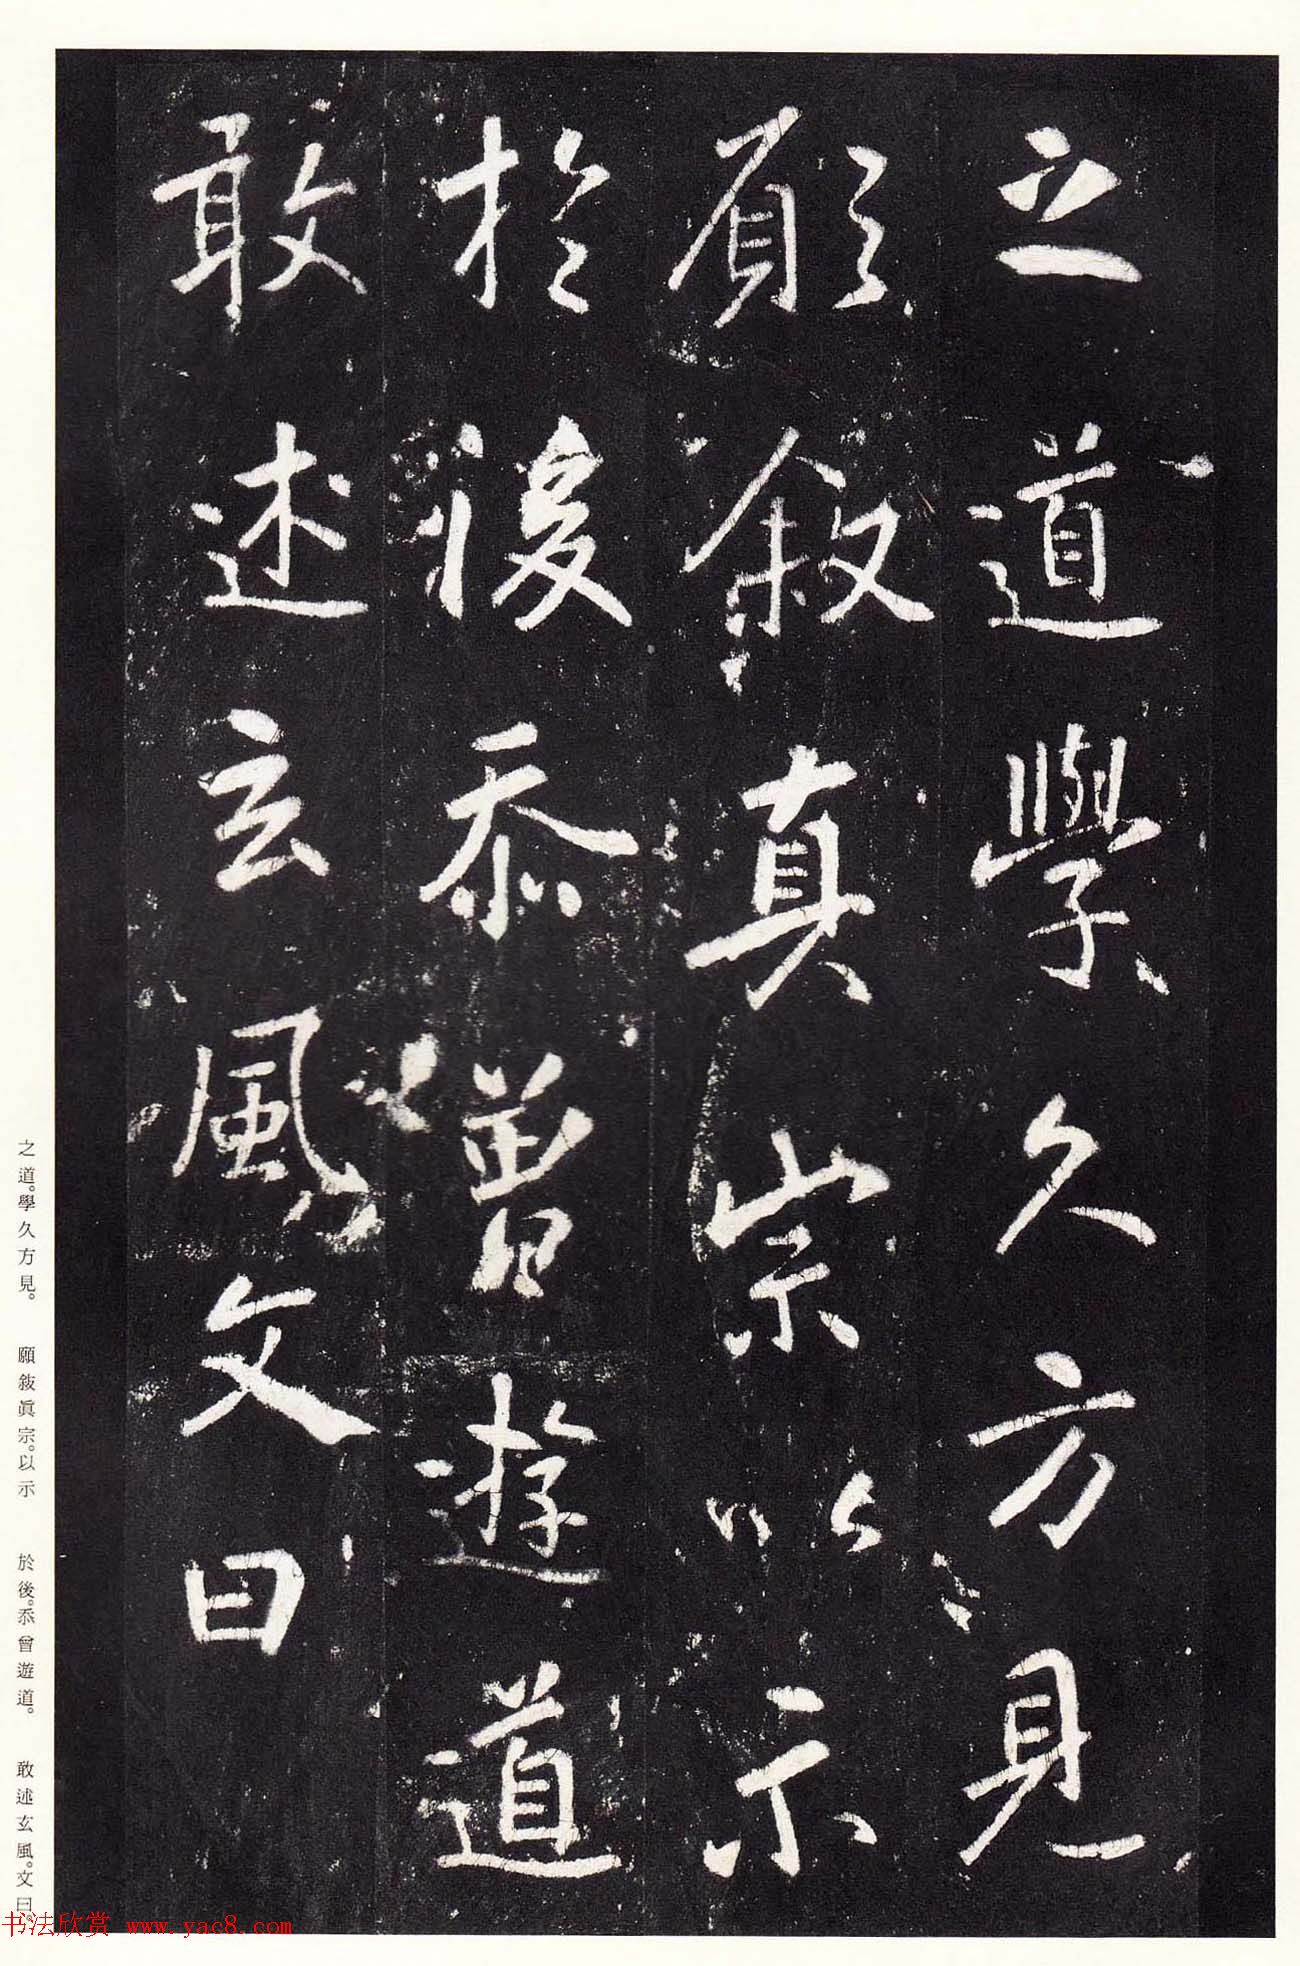 之道學久方見
願敘真宗以示
於後忝曾遊道
敢述玄風文曰
之道。學久方見。 願敍眞宗。以示 於後。忝曾遊道。 敢述玄風。文曰。
书法欣赏 www.yac8.com